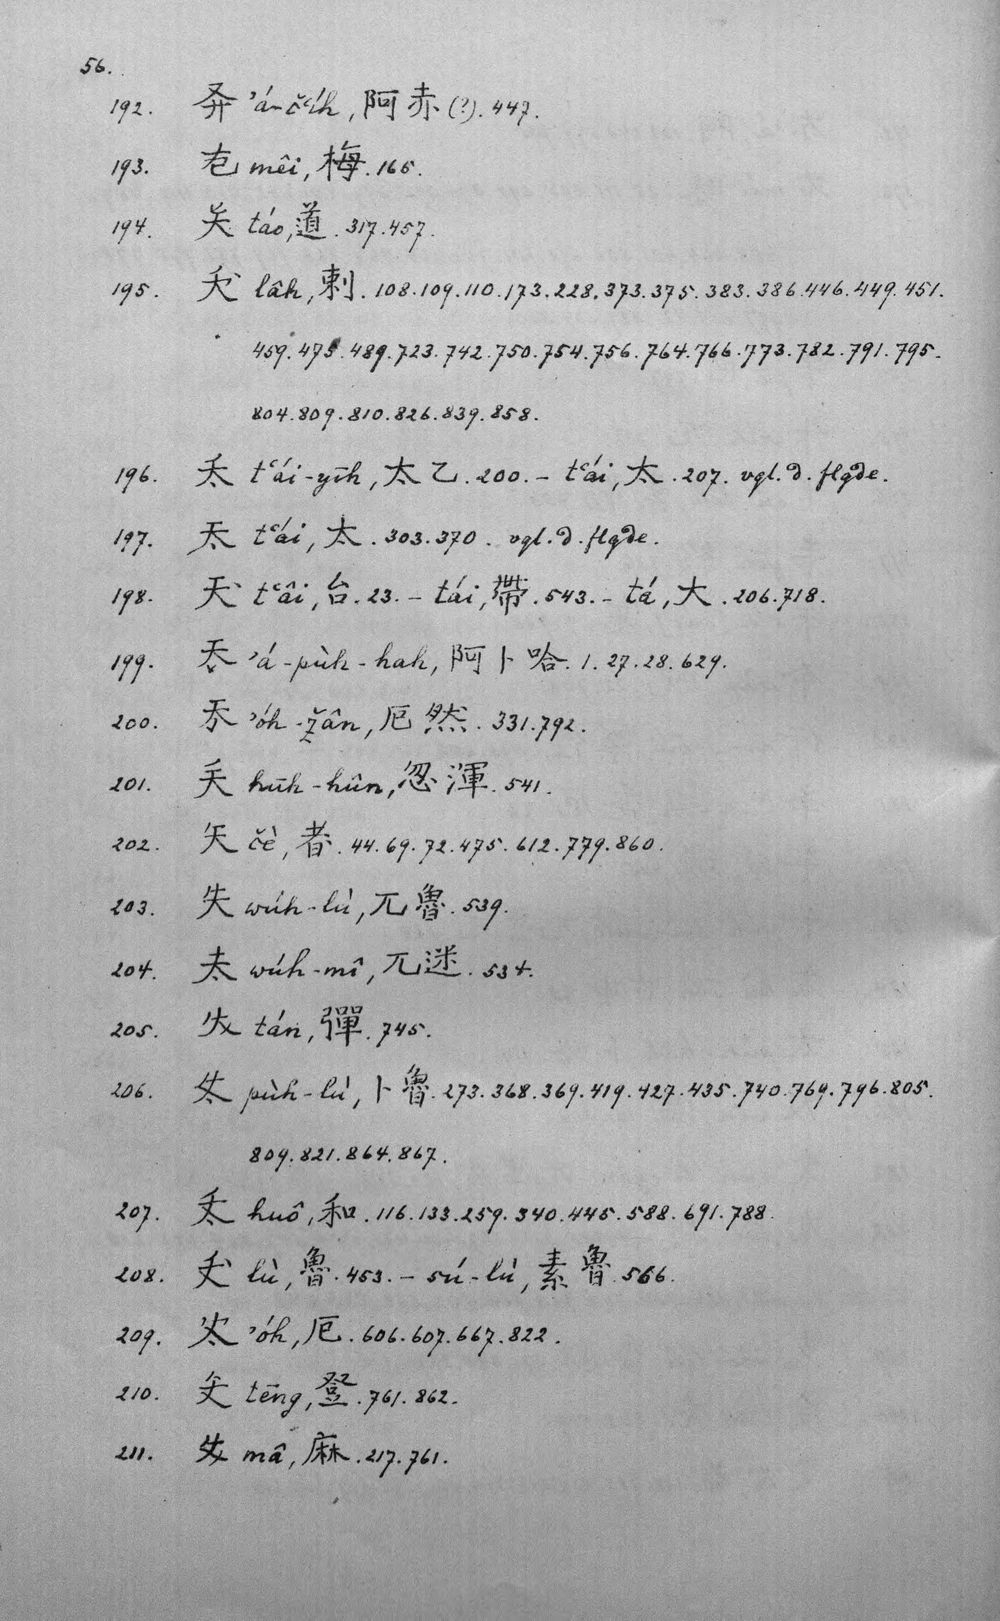 56.
192. 'á-č'íh, 阿赤(?). 447.
193. mêi, 梅. 165.
194. táo, 道. 317. 457.
195. lâh, 剌. 108. 109. 110. 173. 228. 373. 375. 383. 386. 446. 449. 451.
459. 475. 489. 723. 742. 750. 754. 756. 764. 766. 773. 782. 791. 795.
804. 809. 810. 826. 839. 858.
196. t'ái-yīh, 太乙. 200. – t'ái, 太. 207. vgl. d. flgde.
197. t'ái, 太. 303. 370. vgl. d. flgde.
198. t'âi, 台. 23. – tái, 帶. 543. – tá, 大. 206. 718.
199. 'á-pùh-hah, 阿卜哈. 1. 27. 28. 629.
200. 'óh-žân, 厄然. 331. 792.
201. hūh-hûn, 忽渾. 541.
202. čè, 者. 44. 69. 72. 475. 612. 779. 860.
203. wúh-lù, 兀魯. 539.
204. wúh-mî, 兀迷. 534.
205. tán, 彈. 745.
206. pùh-lù, 卜魯. 273. 368. 369. 419. 427. 435. 740. 769. 796. 805.
809. 821. 864. 867.
207. huô, 和. 116. 133. 259. 340. 445. 588. 691. 788
208. lù, 魯. 453. – sú-lù, 素魯. 566.
209. 'óh, 厄. 606. 607. 667. 822.
210. tēng, 登. 761. 862.
211. mâ, 麻. 217. 761.